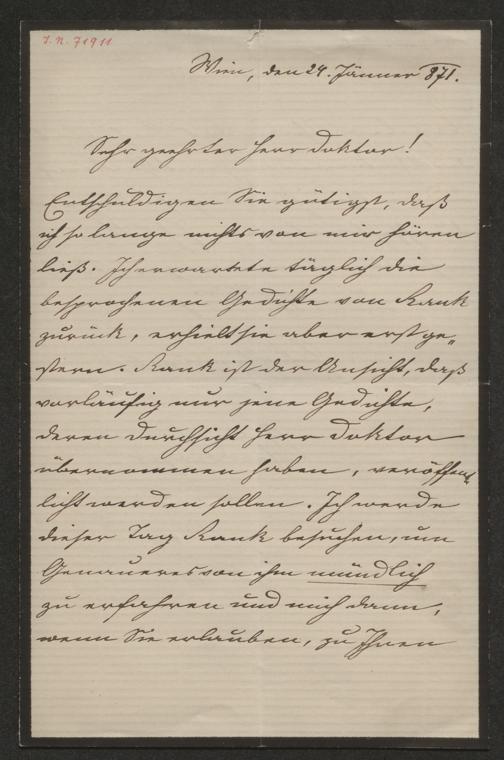 I. N. 71911
Wien, den 24. Jänner 871.
Sehr geehrter Herr Doktor!
Entschuldigen Sie gütigst, daß
ich so lange nichts von mir hören
ließ. Ich erwartete täglich die
besprochenen Gedichte von Rank
zurück, erhielt sie aber erst ge„
stern. Rank ist der Ansicht, daß
vorläufig nur jene Gedichte,
deren Durchsicht Herr Doktor
übernommen haben, veröffent
licht werden sollen. Ich werde
dieser Tag Rank besuchen, um
Genaueres von ihm mündlich
zu erfahren und mich dann,
wenn Sie erlauben, zu Ihnen